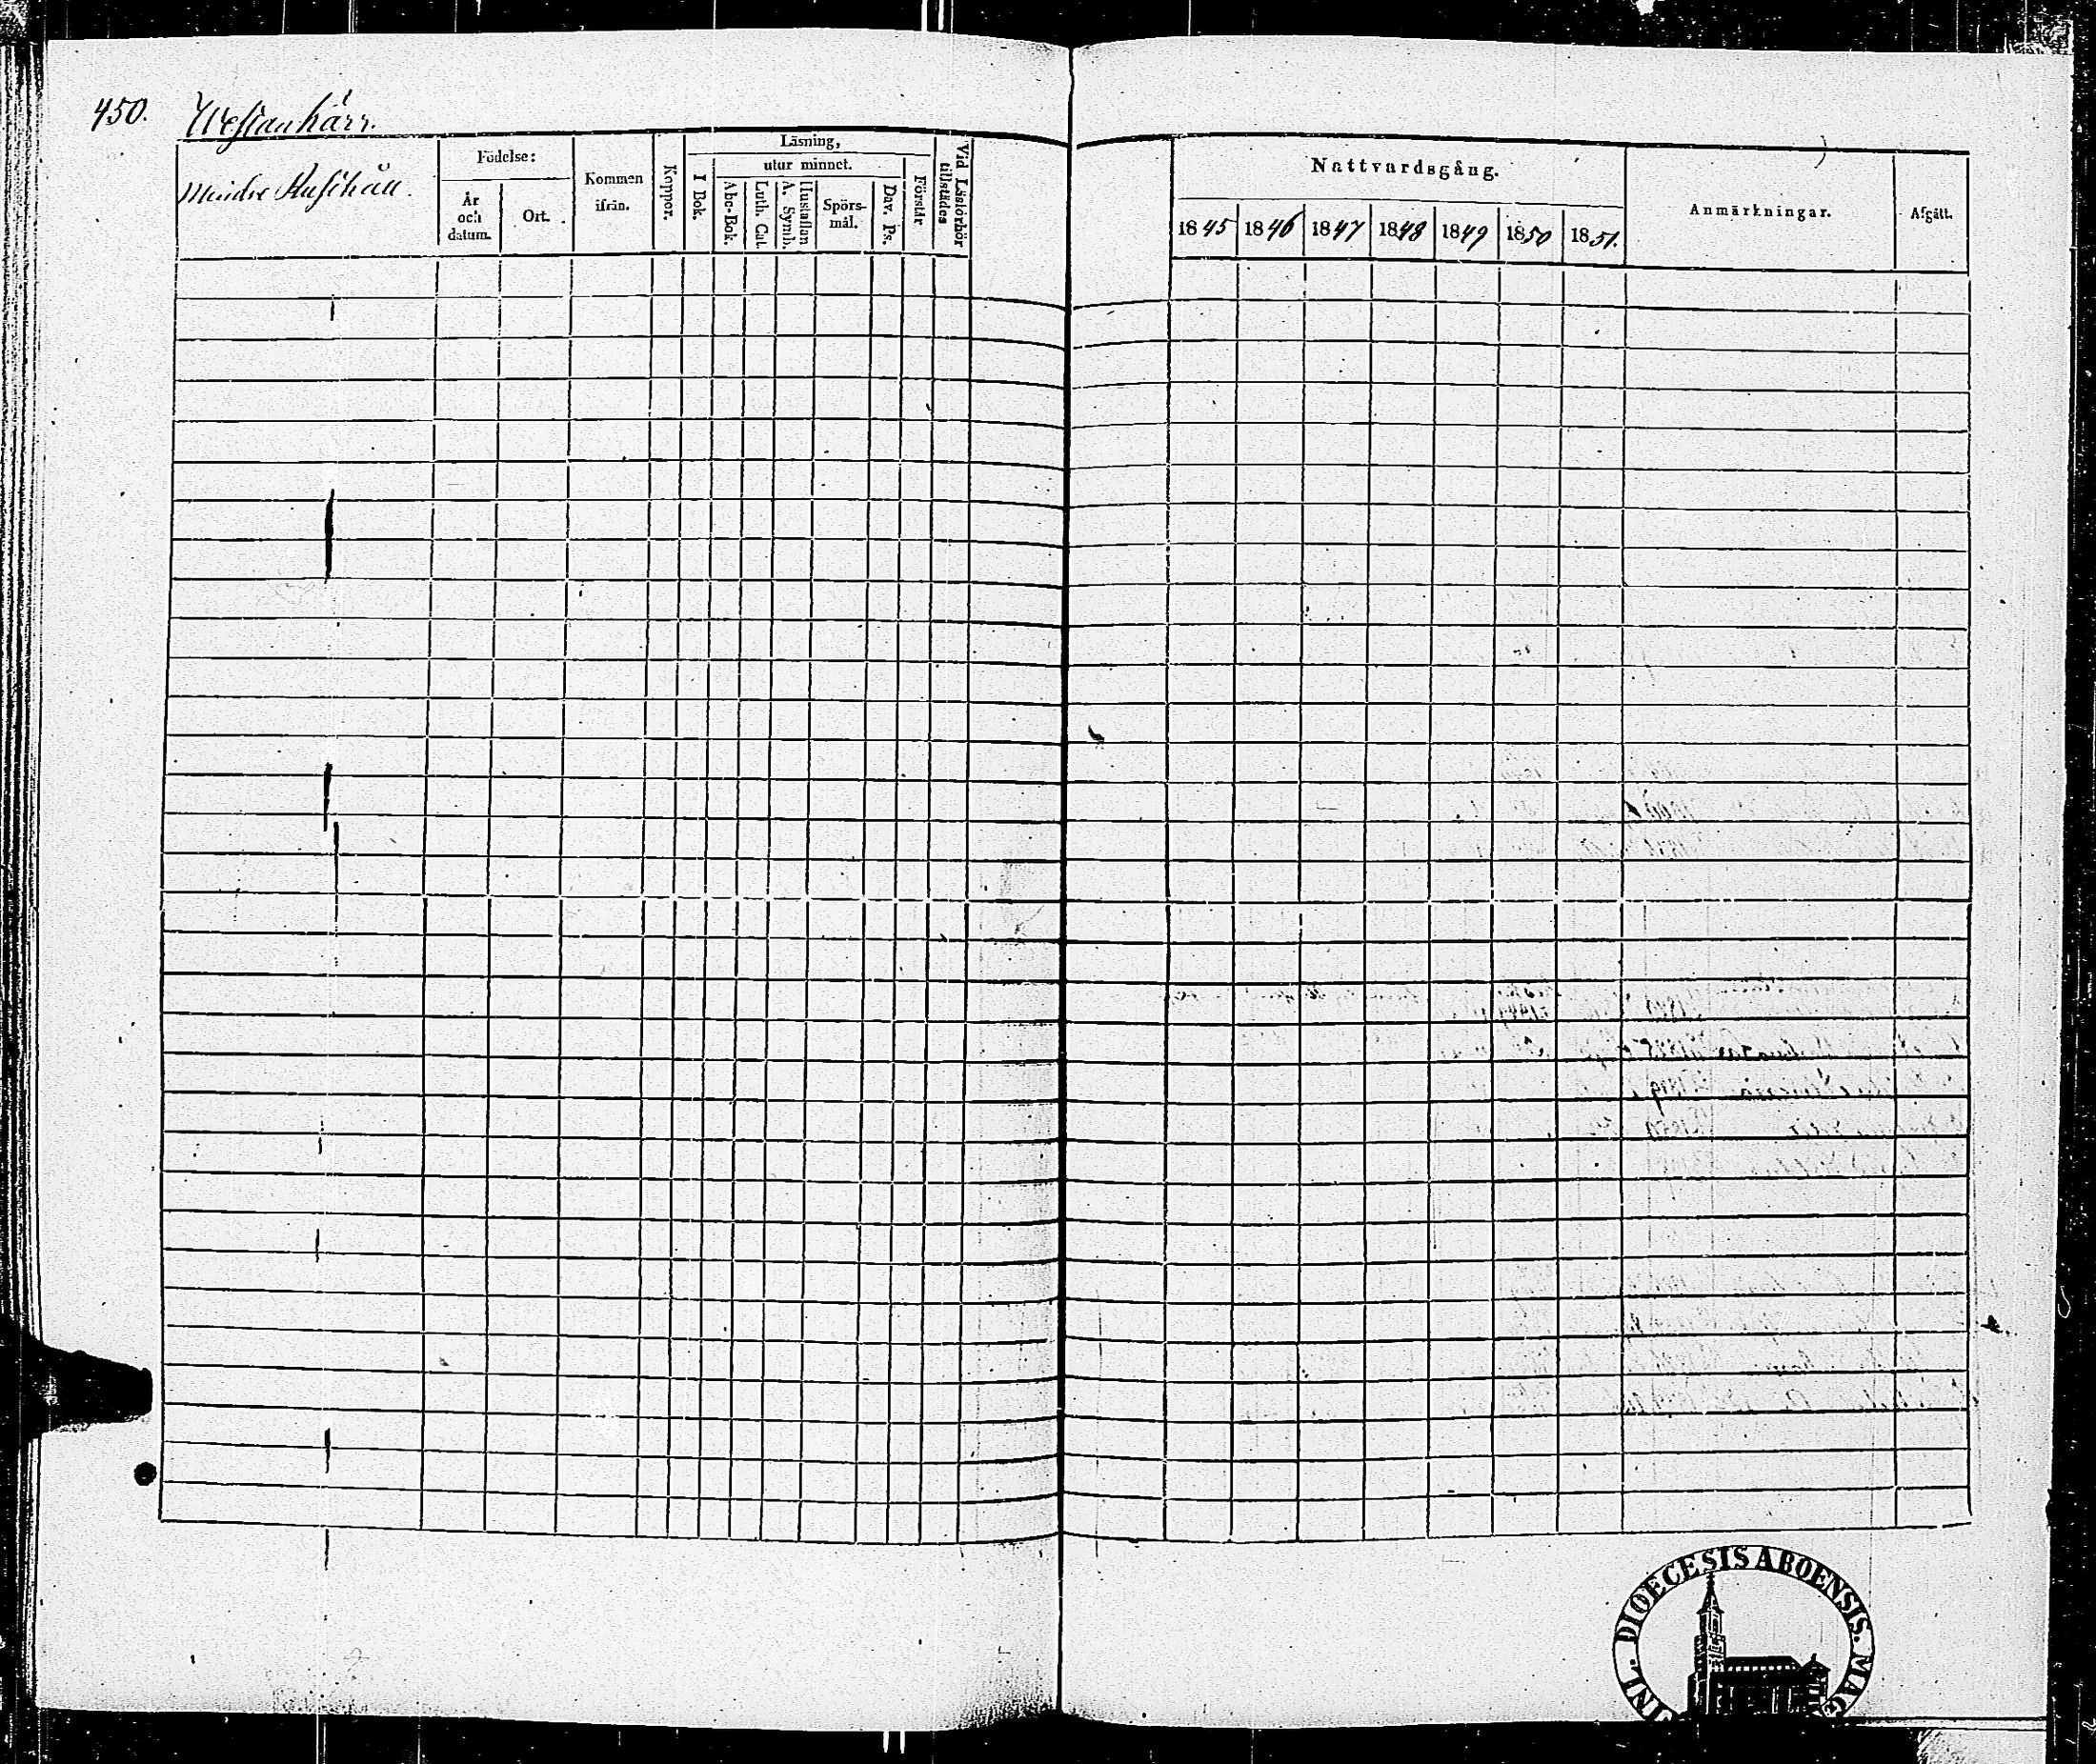 450. Westankärr.
Mindre Rusthåll.
Födelse:
År och datum.
Ort.
Kommen ifrån.
Koppor.
Läsning,
I Bok.
utur minnet.
Abc-Bok.
Luth. Cat.
Hustaflan
A. Symb.
Spörs-
mål.
Dav. Ps.
Förstår
Vid Läsförhör
tillstädes
Nattvardsgång.
1845 1846 1847 1848 1849 1850 1851.
Anmärkningar.
Afgått.
DIOECESIS ABOENSIS. MAG